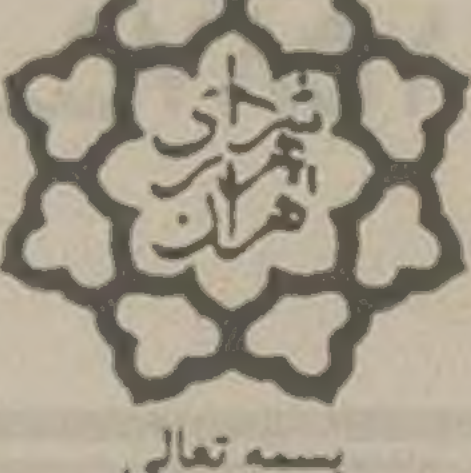 شهرداری
تهران
بسمه تعالی